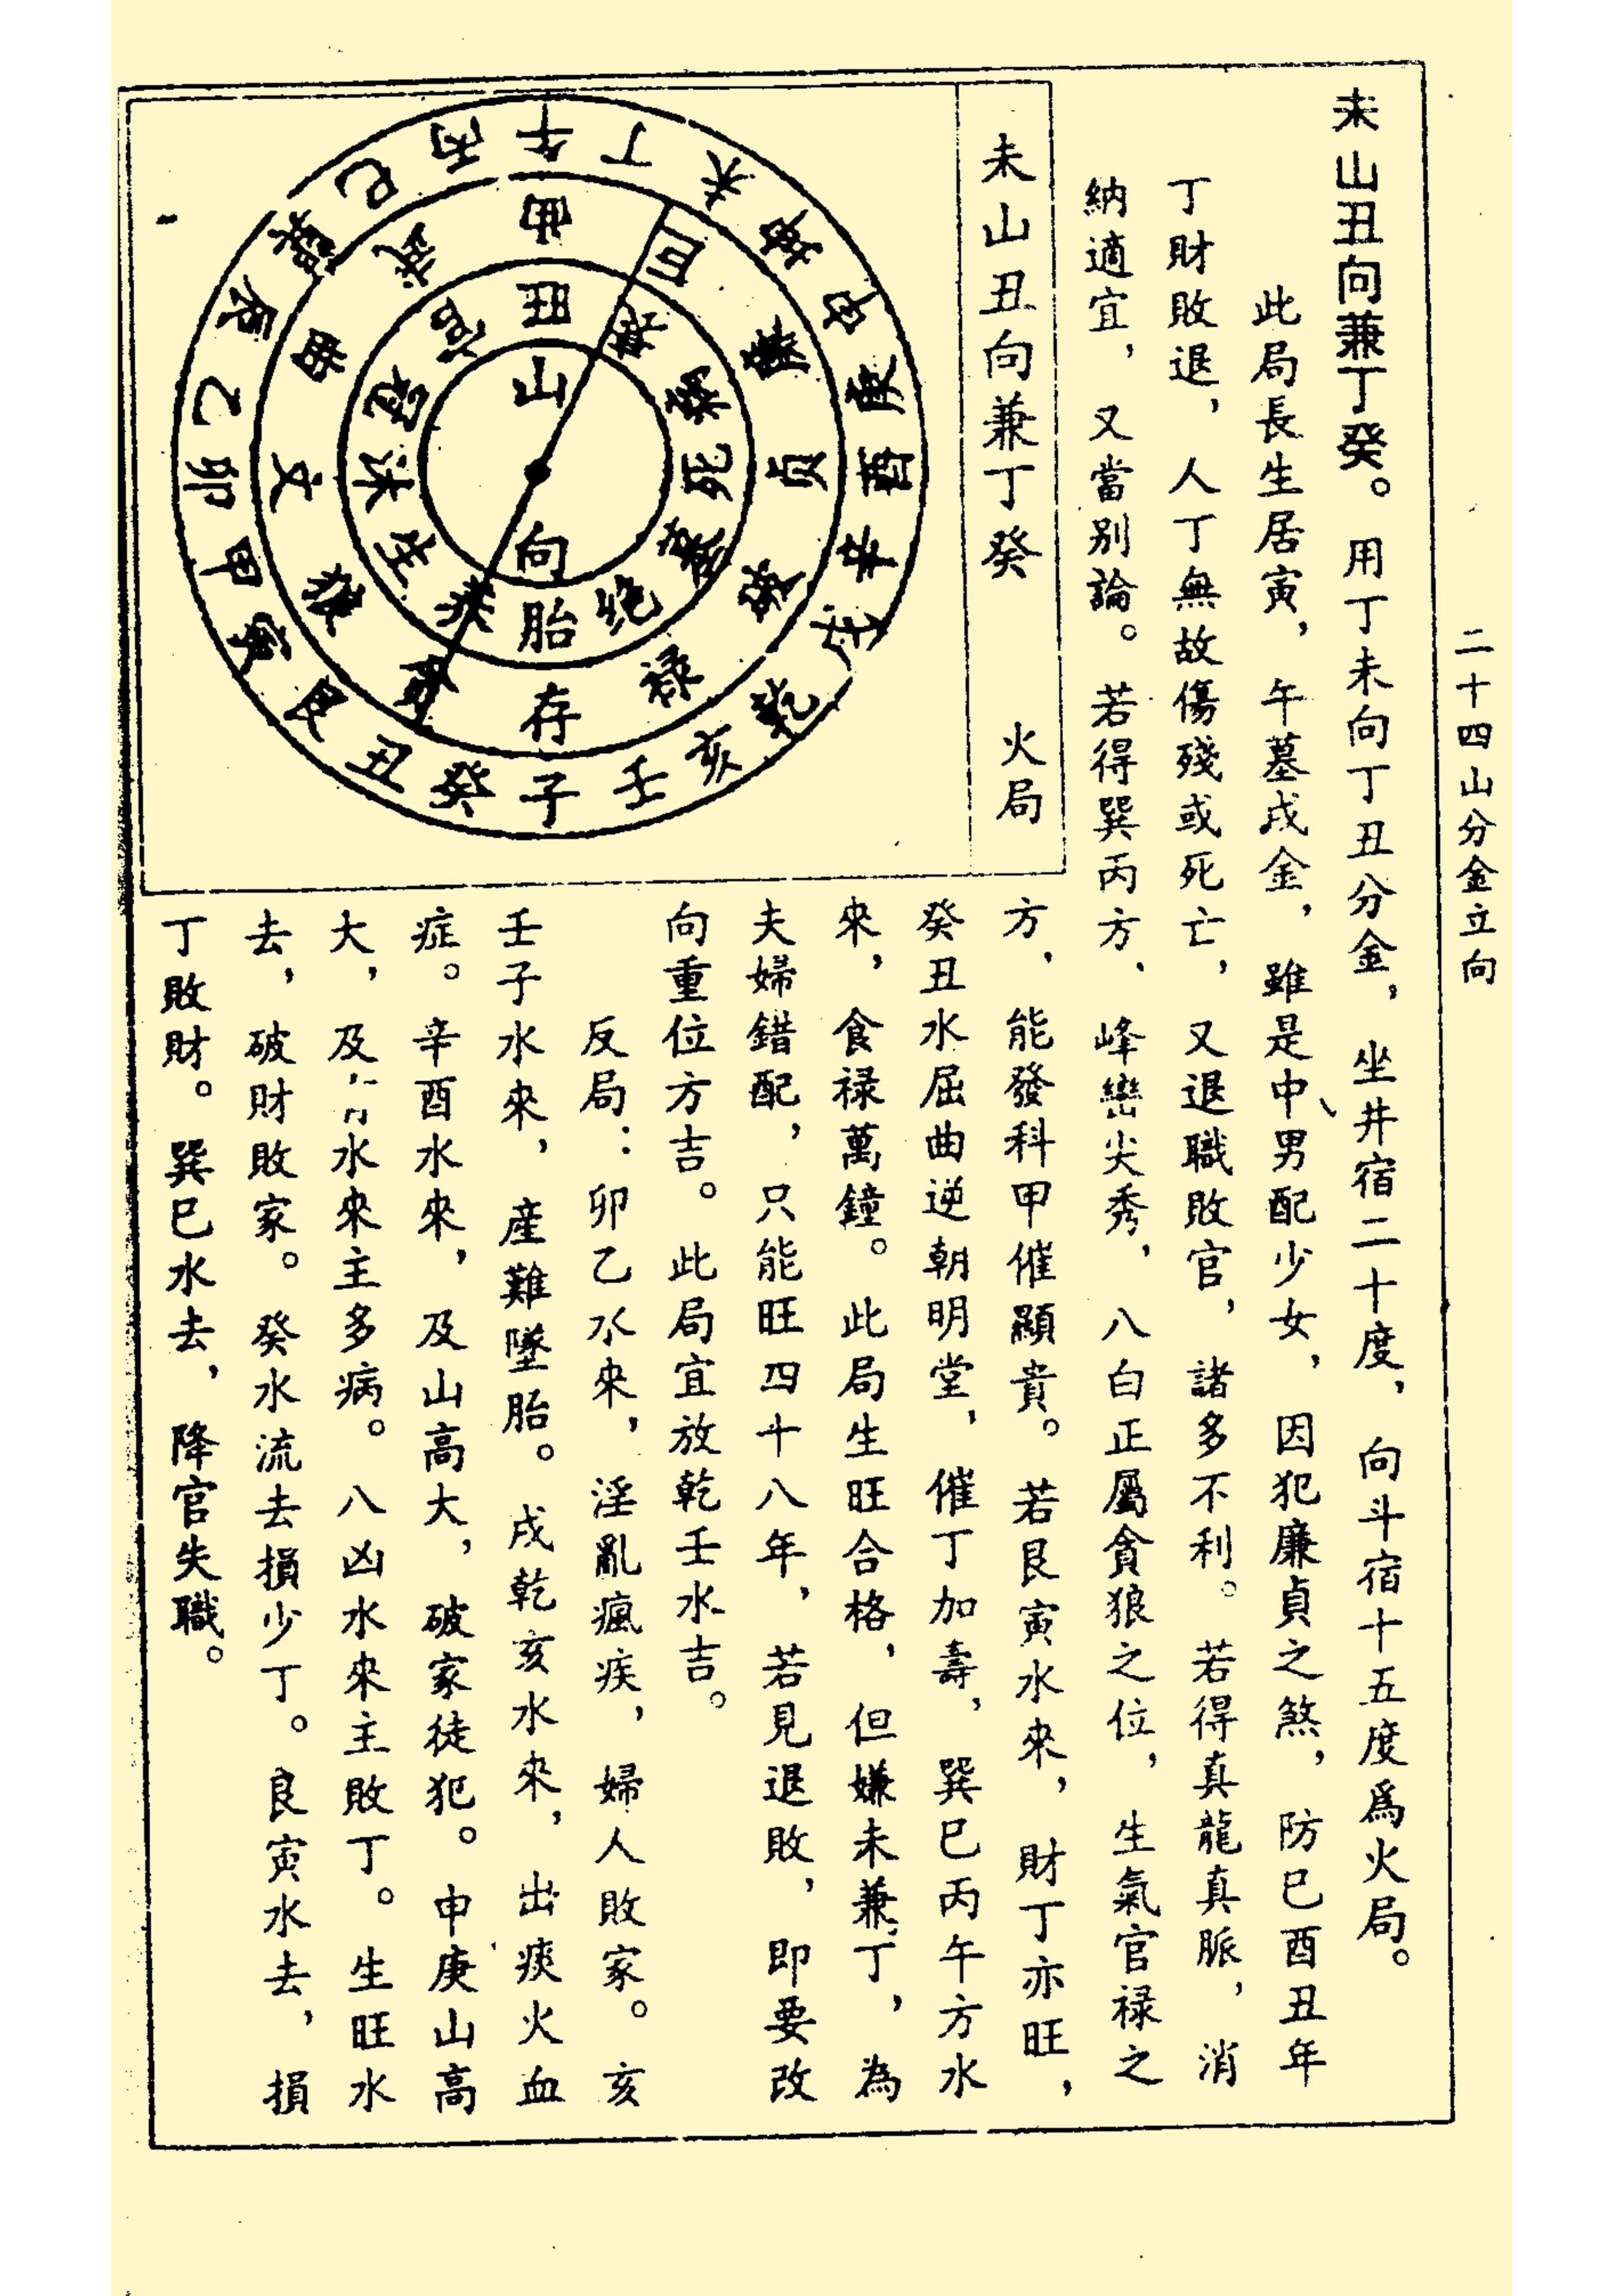 二十四山分金立向
未山丑向兼丁癸。用丁未向丁丑分金，坐井宿二十度，向斗宿十五度爲火局。
此局長生居寅，午墓戌金，雖是中男配少女，因犯廉貞之煞，防巳酉丑年
丁財敗退，人丁無故傷殘或死亡，又退職敗官，諸多不利。若得真龍真脈，消
納適宜，又當別論。若得巽丙方、峰巒尖秀，八白正屬貪狼之位，生氣官禄之
未山丑向兼丁癸　火局
方，能發科甲催顯貴。若艮寅水來，財丁亦旺，
癸丑水屈曲逆朝明堂，催丁加壽，巽巳丙午方水
來，食禄萬鐘。此局生旺合格，但嫌未兼丁，為
夫婦錯配，只能旺四十八年，若見退敗，即要改
向重位方吉。此局宜放乾壬水吉。
反局：卯乙水來，淫亂瘋疾，婦人敗家。亥
壬子水來，產難墜胎。戌乾亥水來，出痰火血
症。辛酉水來，及山高大，破家徒犯。申庚山高
大，及水來主多病。八凶水來主敗丁。生旺水
去，破財敗家。癸水流去損少丁。艮寅水去，損
丁敗財。巽巳水去，降官失職。
山
向
旺
官
冠
沐
生
胎
絕
死
病
武
曲
文
存
禄
貞
廉
巨
午
丁
未
坤
申
庚
酉
辛
戌
乾
亥
壬
子
癸
丑
艮
寅
甲
卯
乙
辰
巽
巳
丙